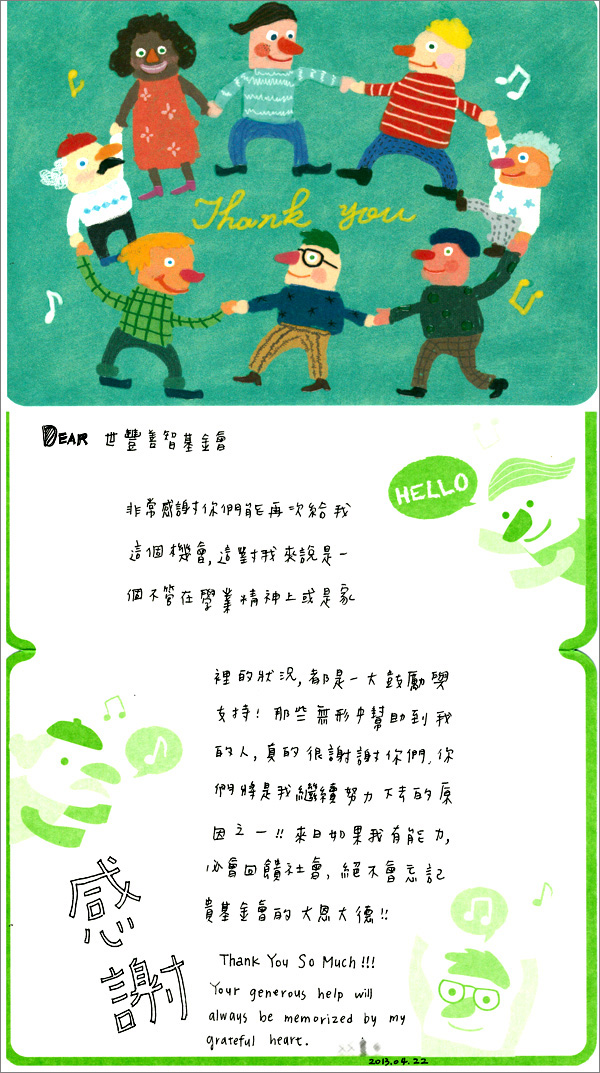 Thank you
DEAR 世豐善智基金會
HELLO
非常感謝你們能再次給我
這個機會,這對我來說是一
個不管在學業精神上或是家
裡的狀況,都是一大鼓勵與
支持! 那些無形中幫助到我
的人,真的很謝謝你們,你
們將是我繼續努力下去的原
因之一!! 來日如果我有能力,
必會回饋社會,絕不會忘記
貴基金會的大恩大德!!
感
謝
Thank You So Much!!!
Your generous help will
always be memorized by my
grateful heart.
2013.04.22